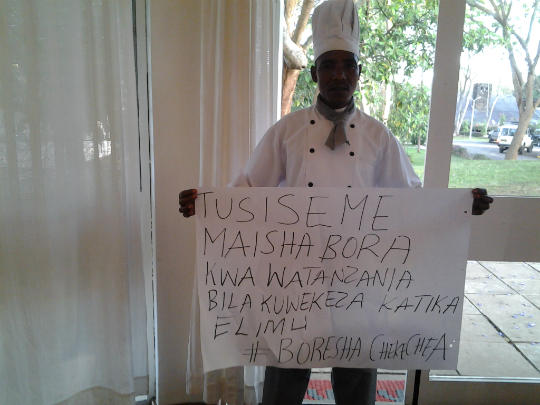 TUSISEME
MAISHA BORA
KWA WATANZANIA
BILA KUWEKEZA KATIKA
ELIMU
# BORESHA CHEKACHEA